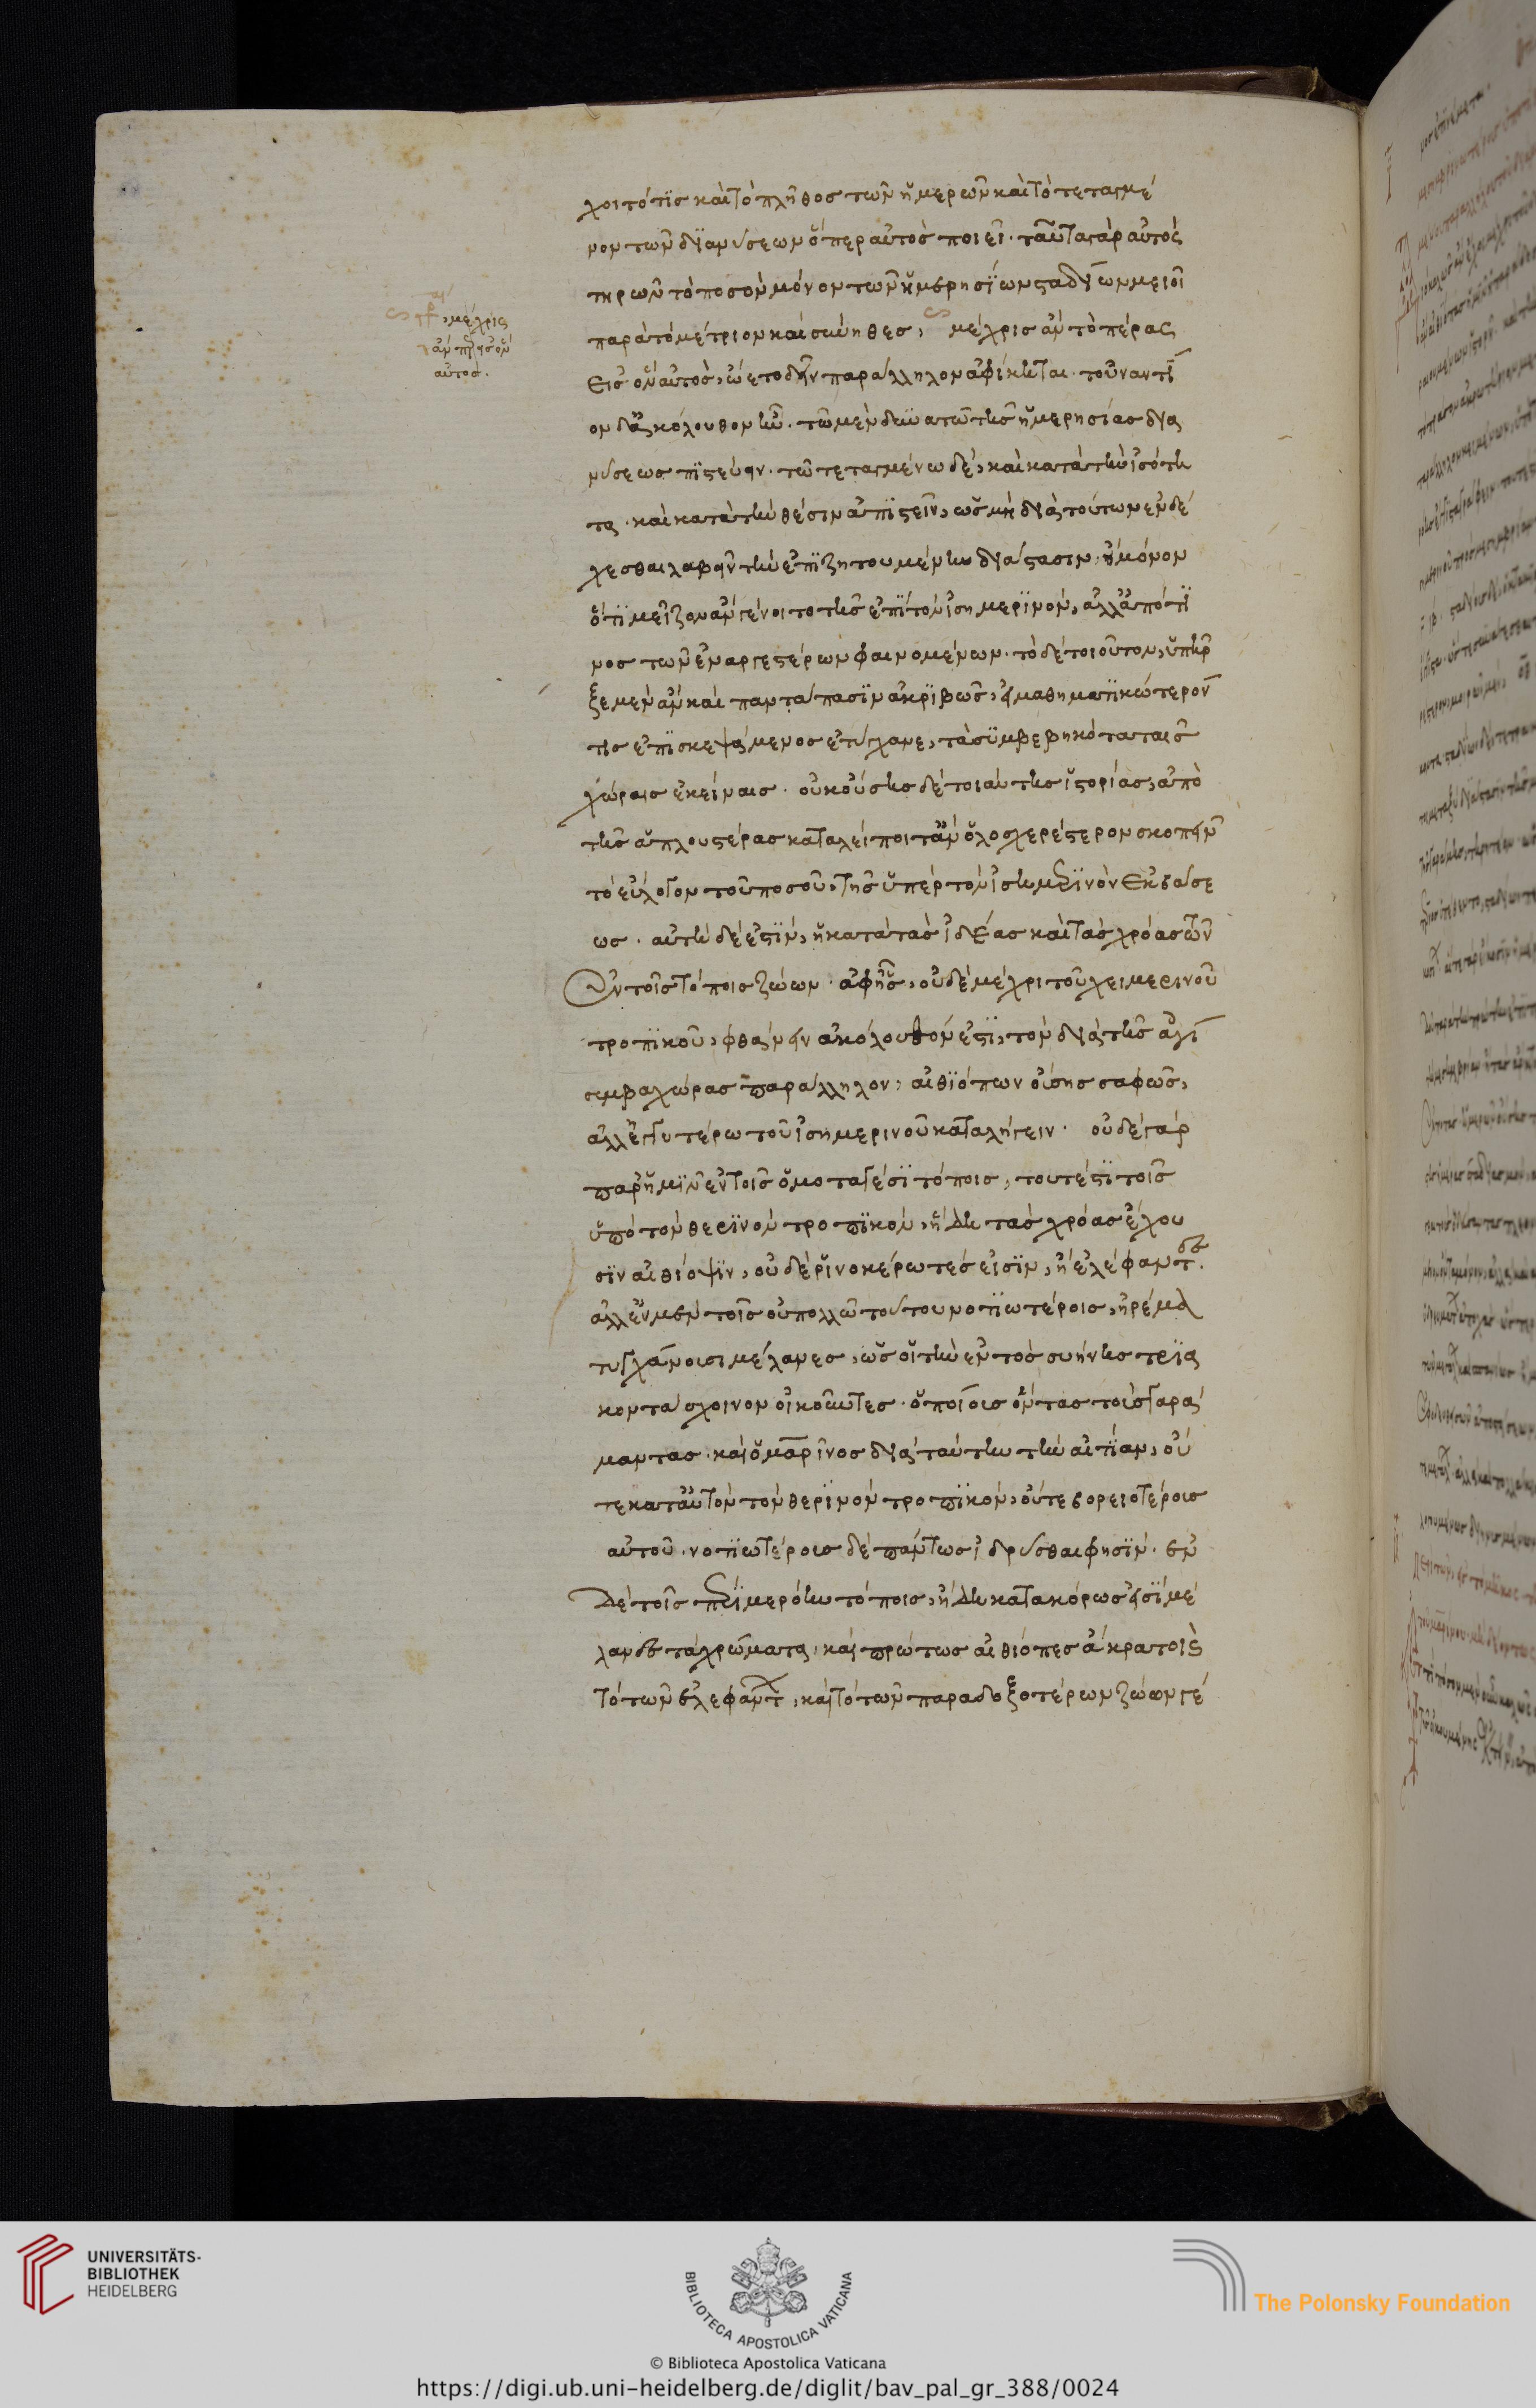 χοι τότις καὶ τὸ πλῆθος τῶν ἡμερῶν καὶ τὸ τεταγμέ
νον τῶν διανύσεων ὅπερ αὐτὸς ποιεῖ· ταῦτα γὰρ αὐτὸς
τηρῶν τὸ ποσὸν μόνον τῶν ἡμερησίων σταδίων μειοῖ
παρὰ τὸ μέτριον καὶ σύνηθες, μέχρις ἂν τὸ πέρας
εἰς ὃν αὐτὸς ᾤετο δεῖν παράλληλον ἀφίκηται· τοὐναντί
ον δ' ἀκόλουθον ἦν· τῶ μὲν δυνατῶ τῆς ἡμερησίας δια
νύσεως πιστεύειν· τῶ τεταγμένω δὲ, καὶ κατὰ τὴν ἰσότη
τα· καὶ κατὰ τὴν θέσιν ἀπιστεῖν, ὡς μὴ διὰ τούτων ἐνδέ
χεσθαι λαβεῖν τὴν ἐπιζητουμένην διάστασιν· ἢ μόνον
ὅτι μεῖζον ἂν γένοιτο τῆς ἐπὶ τὸν ἰσημερινὸν, ἀλλ' ἀπό τι
νος τῶν ἐναργεστέρων φαινομένων· τὸ δὲ τοιοῦτον, ὑπῆρ
ξε μὲν ἂν καὶ πανταπάσιν ἀκριβῶς, εἰ μαθηματικώτερον
τις ἐπισκεψάμενος ἐτύγχανε, τὰ συμβεβηκότα ταῖς
χώραις ἐκείναις· οὐκ οὔσης δὲ τοιαύτης ἱστορίας, ἀπὸ
τῆς ἁπλουστέρας καταλείποιτ' ἂν ὁλοσχερέστερον σκοπεῖν
τὸ εὔλογον τοῦ ποσοῦ, τῆς ὑπὲρ τὸν ἰσημερινὸν ἐκβάσε
ως· αὐτὴ δέ ἐστιν, ἡ κατὰ τὰς ἰδέας καὶ τὰς χρόας τῶν
ἐν τοῖς τόποις ζώων· ἀφ' ἧς, οὐδὲ μέχρι τοῦ χειμερινοῦ
τροπικοῦ, φθάνειν ἀκόλουθόν ἐστι, τὸν διὰ τῆς ἀγί
συμβα χώρας παράλληλον, αἰθιόπων οὔσης σαφῶς,
ἀλλ' ἐγγυτέρω τοῦ ἰσημερινοῦ καταλήγειν· οὐδὲ γὰρ
παρ' ἡμῖν ἐν τοῖς ὁμοταγέσι τόποις, τουτέστι τοῖς
ὑπὸ τὸν θερινὸν τροπικὸν, ἤδη τὰς χρόας ἔχου
σιν αἰθιόψιν, οὐδὲ ῥινοκέρωτές εἰσιν, ἢ ἐλέφαντες.
ἀλλ' ἐν μὲν τοῖς οὐ πολλῶ τούτου νοτιωτέροις, ἠρέμα
τυγχάνουσι μέλανες, ὡς οἱ τὴν ἐντὸς συήνης τρια
κοντάσχοινον οἰκοῦντες· ὁποίους ὄντας τοὺς γαρά
μαντας· καὶ ὁ μαρῖνος διὰ ταύτην τὴν αἰτίαν, οὔ
τε κατ' αὐτὸν τὸν θερινὸν τροπικὸν, οὔτε βορειοτέροις
αὐτοῦ· νοτιωτέροις δὲ πάντως ἱδρύσθαι φησίν· ἐν
δὲ τοῖς περὶ μερόην τόποις, ἤδη κατακόρως εἰσὶ μέ
λανες τὰ χρώματα, καὶ πρώτως αἰθίοπες ἄκρατοι,
τὸ τῶν ἐλεφάντων, καὶ τὸ τῶν παραδοξοτέρων ζώων γέ
μέχρις
ἂν
αὐτὸς.
UNIVERSITÄTS-
BIBLIOTHEK
HEIDELBERG
BIBLIOTECA APOSTOLICA VATICANA
The Polonsky Foundation
© Biblioteca Apostolica Vaticana
https://digi.ub.uni-heidelberg.de/diglit/bav_pal_gr_388/0024